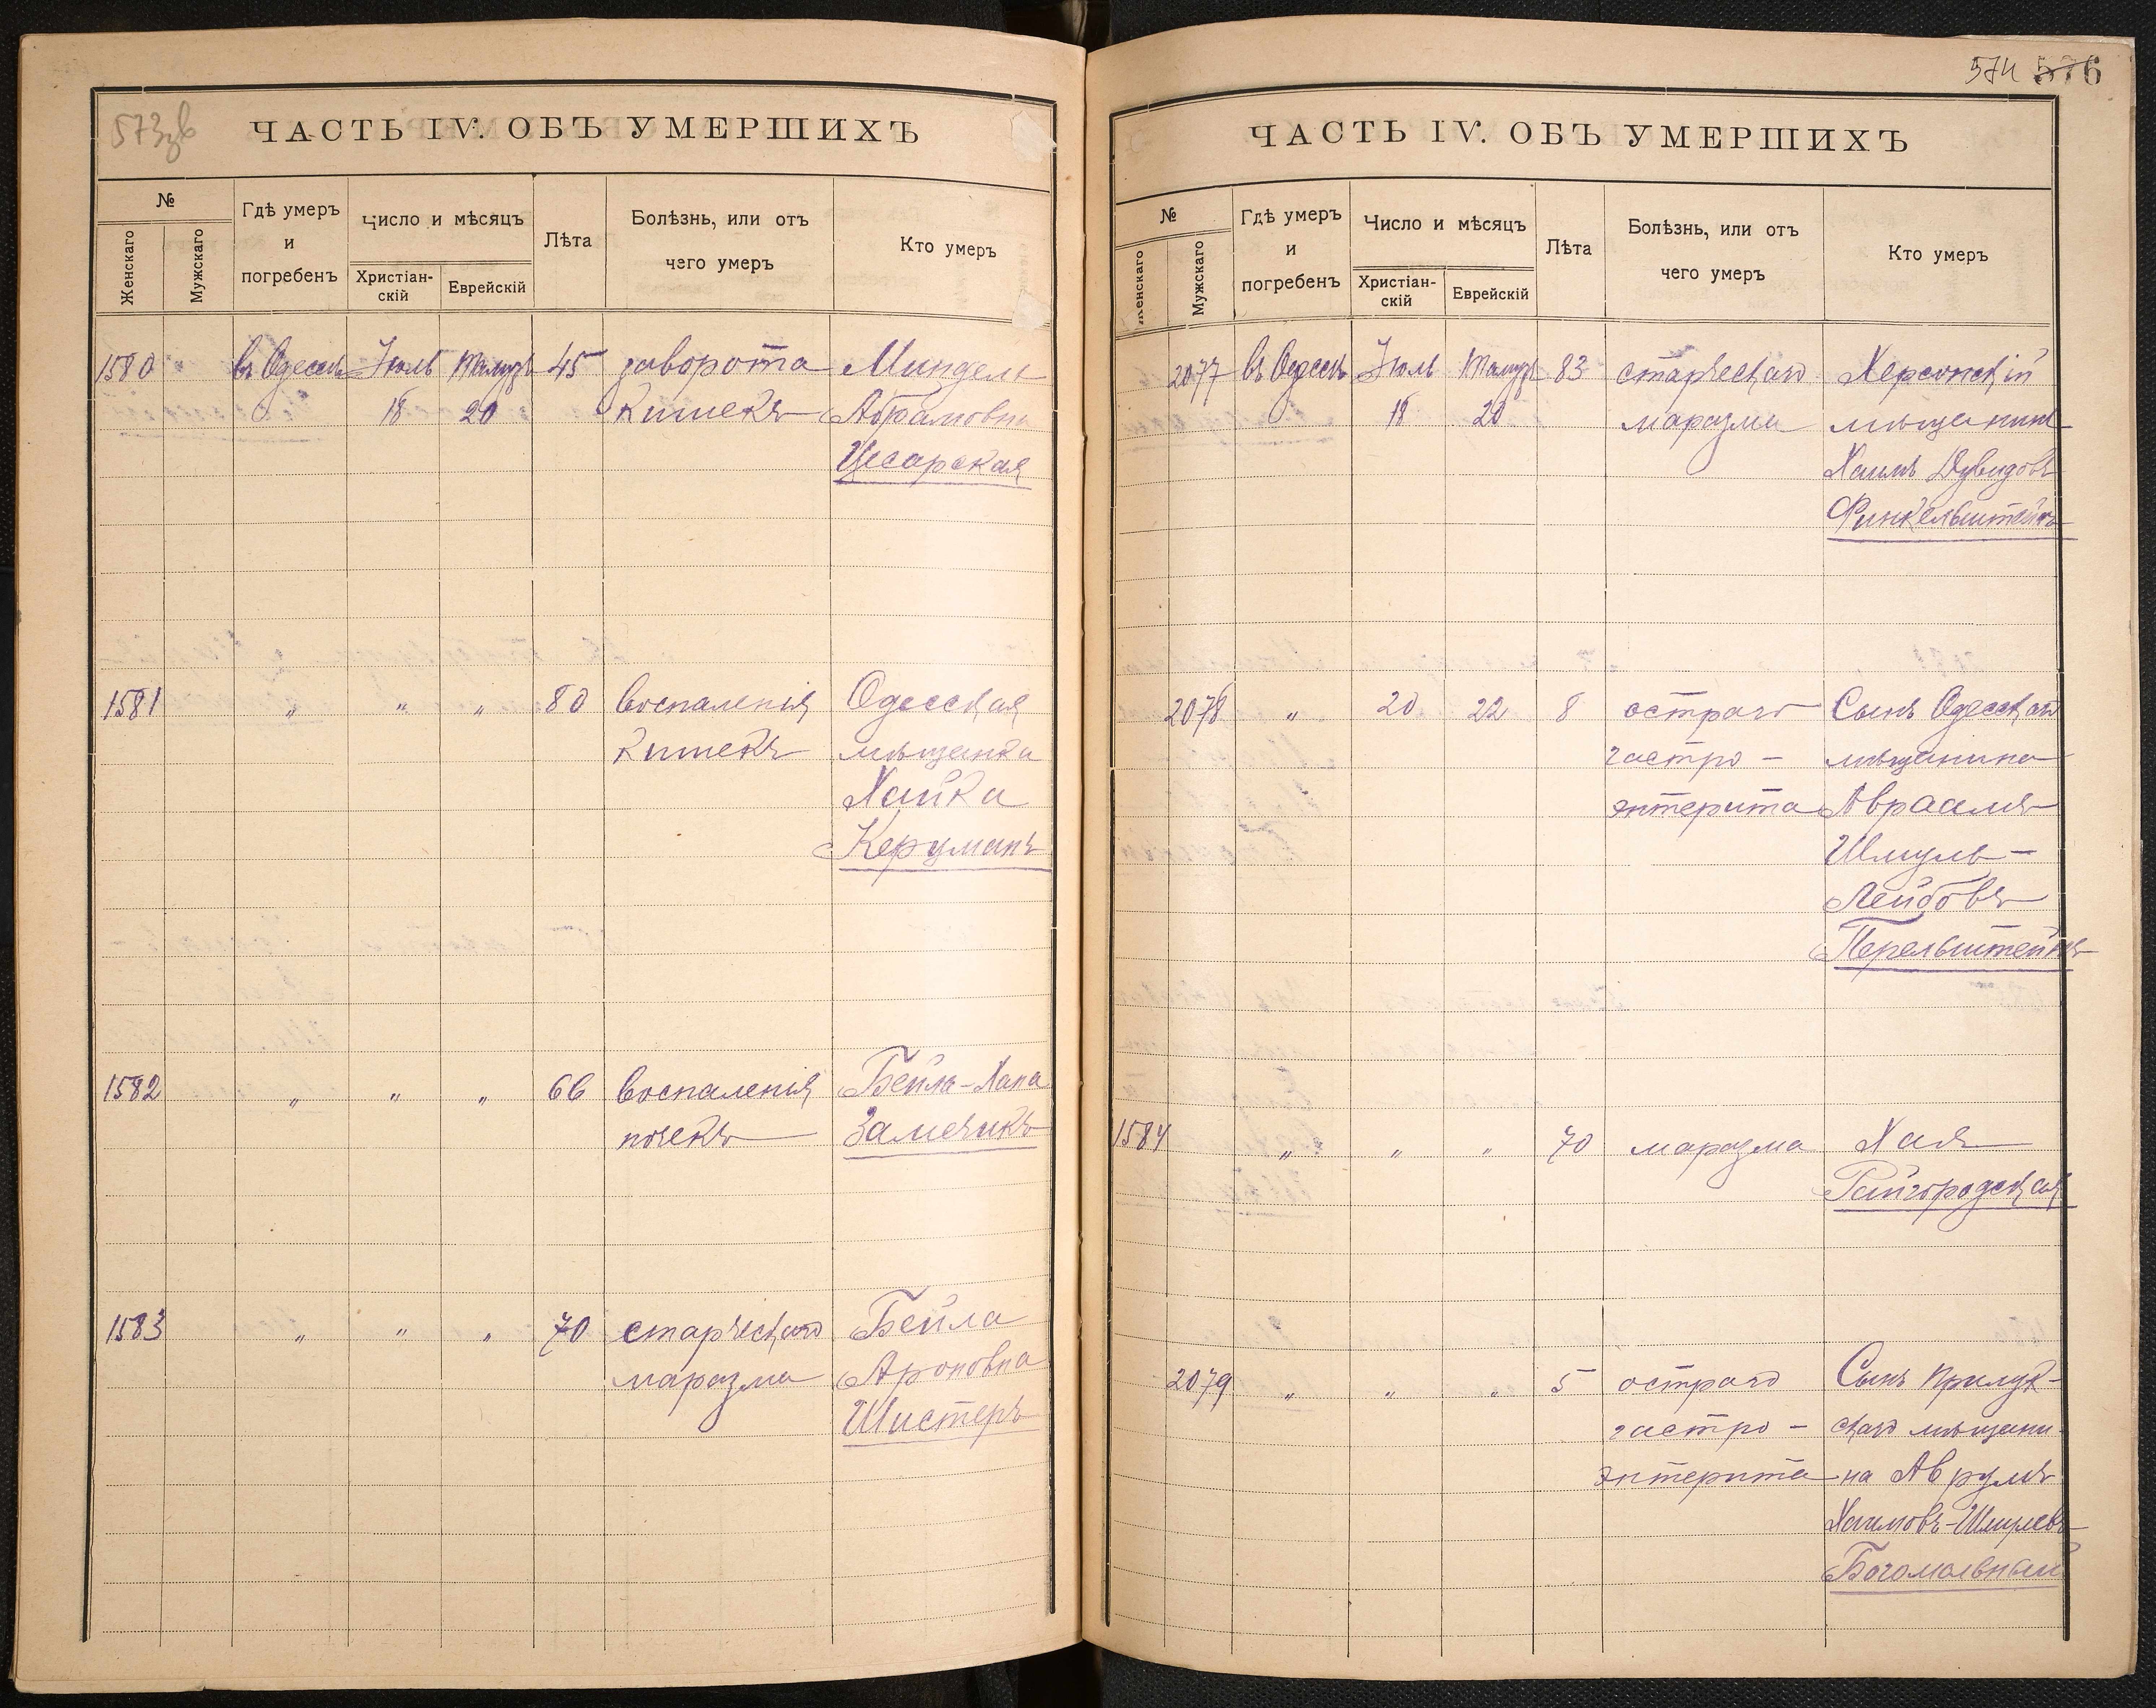 573зв
ЧАСТЬ IV. ОБЪ УМЕРШИХЪ
№
Женскаго
Мужскаго
Гдѣ умеръ
и
погребенъ
Число и мѣсяцъ
Христіан-
скій
Еврейскій
Лѣта
Болѣзнь, или отъ
чего умеръ
Кто умеръ
1580 въ Одессѣ Іюль Тамузъ 45 заворота Миндель
18 20 кишекъ Абрамовна
Цесарская
1581 " " " 80 воспаленія Одесская
кишекъ мѣщанка
Хайка
Керуманъ
1582 " " " 66 воспаленія Бейла-Хана
почекъ Замечикъ
1583 " " " 70 старческаго Бейла
маразма Ароновна
Шистеръ
574 576
ЧАСТЬ IV. ОБЪ УМЕРШИХЪ
№
Женскаго
Мужскаго
Гдѣ умеръ
и
погребенъ
Число и мѣсяцъ
Христіан-
скій
Еврейскій
Лѣта
Болѣзнь, или отъ
чего умеръ
Кто умеръ
2077 въ Одессѣ Іюль Тамузъ 83 старческаго Херсонскій
18 20 маразма мѣщанинъ
Хаимъ Дувидовъ
Финкельштейнъ
2078 " 20 22 8 остраго Сынъ Одесскаго
гастро - мѣщанина
энтерита Авраамъ
Шмуль -
Лейбовъ
Перельштейнъ
1584 " " " 70 маразма Хая
Райгородская
2079 " " " 5 остраго Сынъ Прилук-
гастро - скаго мѣщани-
энтерита на Аврумъ
Хаимовъ-Шмулевъ
Богомольный